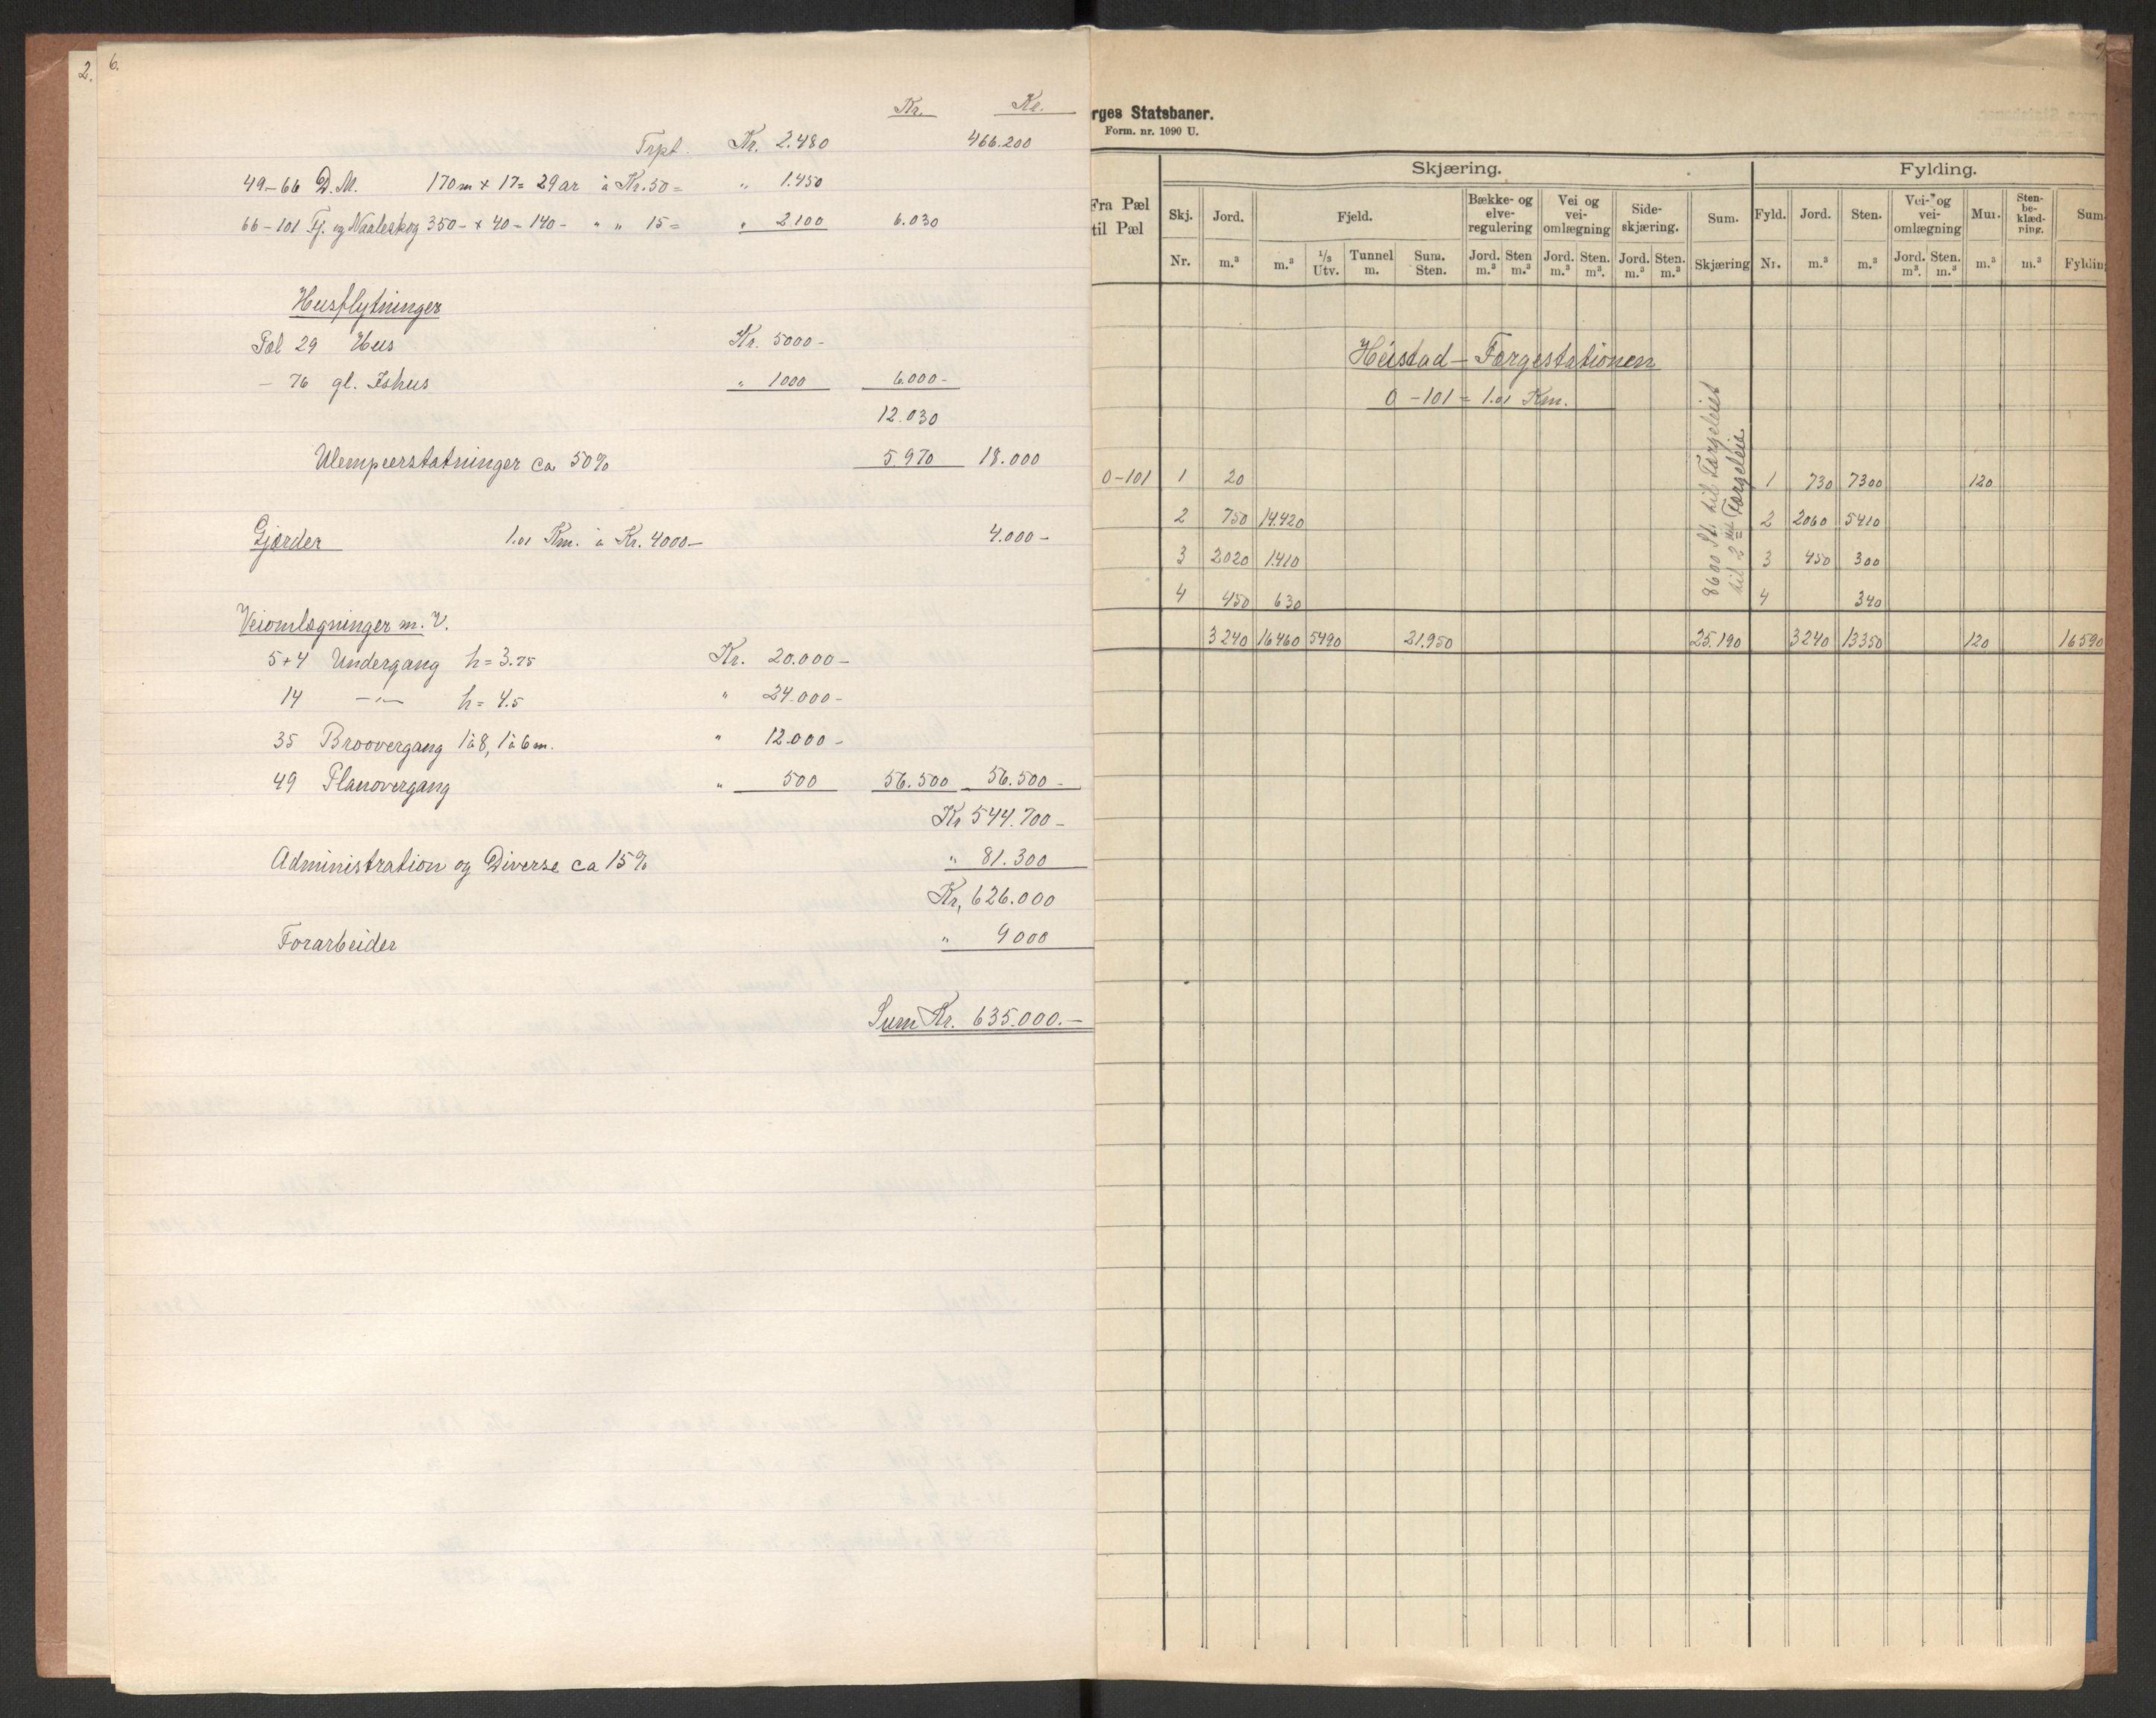 2.
6.
Kr. Kr.
Trpt. Kr. 2.480 466.200
49-66 D.M. 170m x 17 = 29 ar à Kr. 50 = " 1.450
66-101 Fj. og Naaleskog 350 - x 40 - 140 - " " 15 = " 2100 6.030
Husflytninger
Pæl 29 Hus Kr. 5000 -
- 76 gl. Ishus " 1000 6.000 -
12.030
Ulempeerstatninger ca 50% 5.970 18.000
Gjærder 1.01 Km. à Kr. 4000 - 4.000 -
Veiomlægninger m. V.
5+4 Undergang h = 3.75 Kr. 20.000 -
14 -"- h = 4.5 " 24.000 -
35 Broovergang 1à8, 1à6m. " 12.000 -
49 Planovergang " 500 56.500 56.500 -
Kr 544.700 -
Administration og Diverse ca 15% " 81.300
Kr. 626.000
Forarbeider " 9000
Sum Kr. 635.000.-
rges Statsbaner.
Form. nr. 1090 U.
Skjæring. Fylding.
Fra Pæl til Pæl Skj. Jord. Fjeld. Bække- og elve-regulering Vei og vei-omlægning Side-skjæring. Sum. Fyld. Jord. Sten. Vei- og vei-omlægning Mur. Sten-be-klæd-ning. Sum
Nr. m.³ m.³ 1/3 Utv. Tunnel m. Sum. Sten. Jord. m.³ Sten m.³ Jord. m.³ Sten. m³. Jord. m.³ Sten. m.³ Skjæring Nr. m.³ m.³ Jord. m³. Sten. m.³ m.³ m.³ Fylding
Heistad - Færgestationen
0-101 = 1.01 Km.
8600 St. til Færgeleiet
til 2det Færgeleie.
0-101 1 20 1 730 7300 120
2 750 14.420 2 2060 5410
3 2020 1.410 3 450 300
4 450 630 4 340
3240 16460 5490 21.950 25.190 3240 13350 120 16590